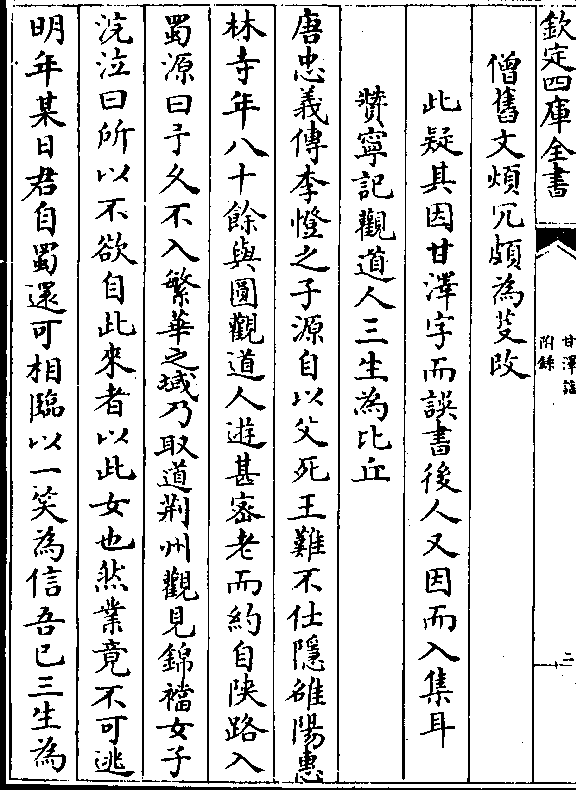 欽定四庫全書
甘澤謡
附錄
二
僧舊文煩冗頗為芟改
此疑其因甘澤字而誤書後人又因而入集耳
贊寧記觀道人三生為比丘
唐忠義傳李憕之子源自以父死王難不仕隱雒陽惠
林寺年八十餘與圓觀道人逰甚宻老而約自陜路入
蜀源曰予久不入繁華之域乃取道荆州觀見錦襠女子
浣泣曰所以不欲自此來者以此女也然業竟不可逃
明年某日君自蜀還可相臨以一笑為信吾已三生為